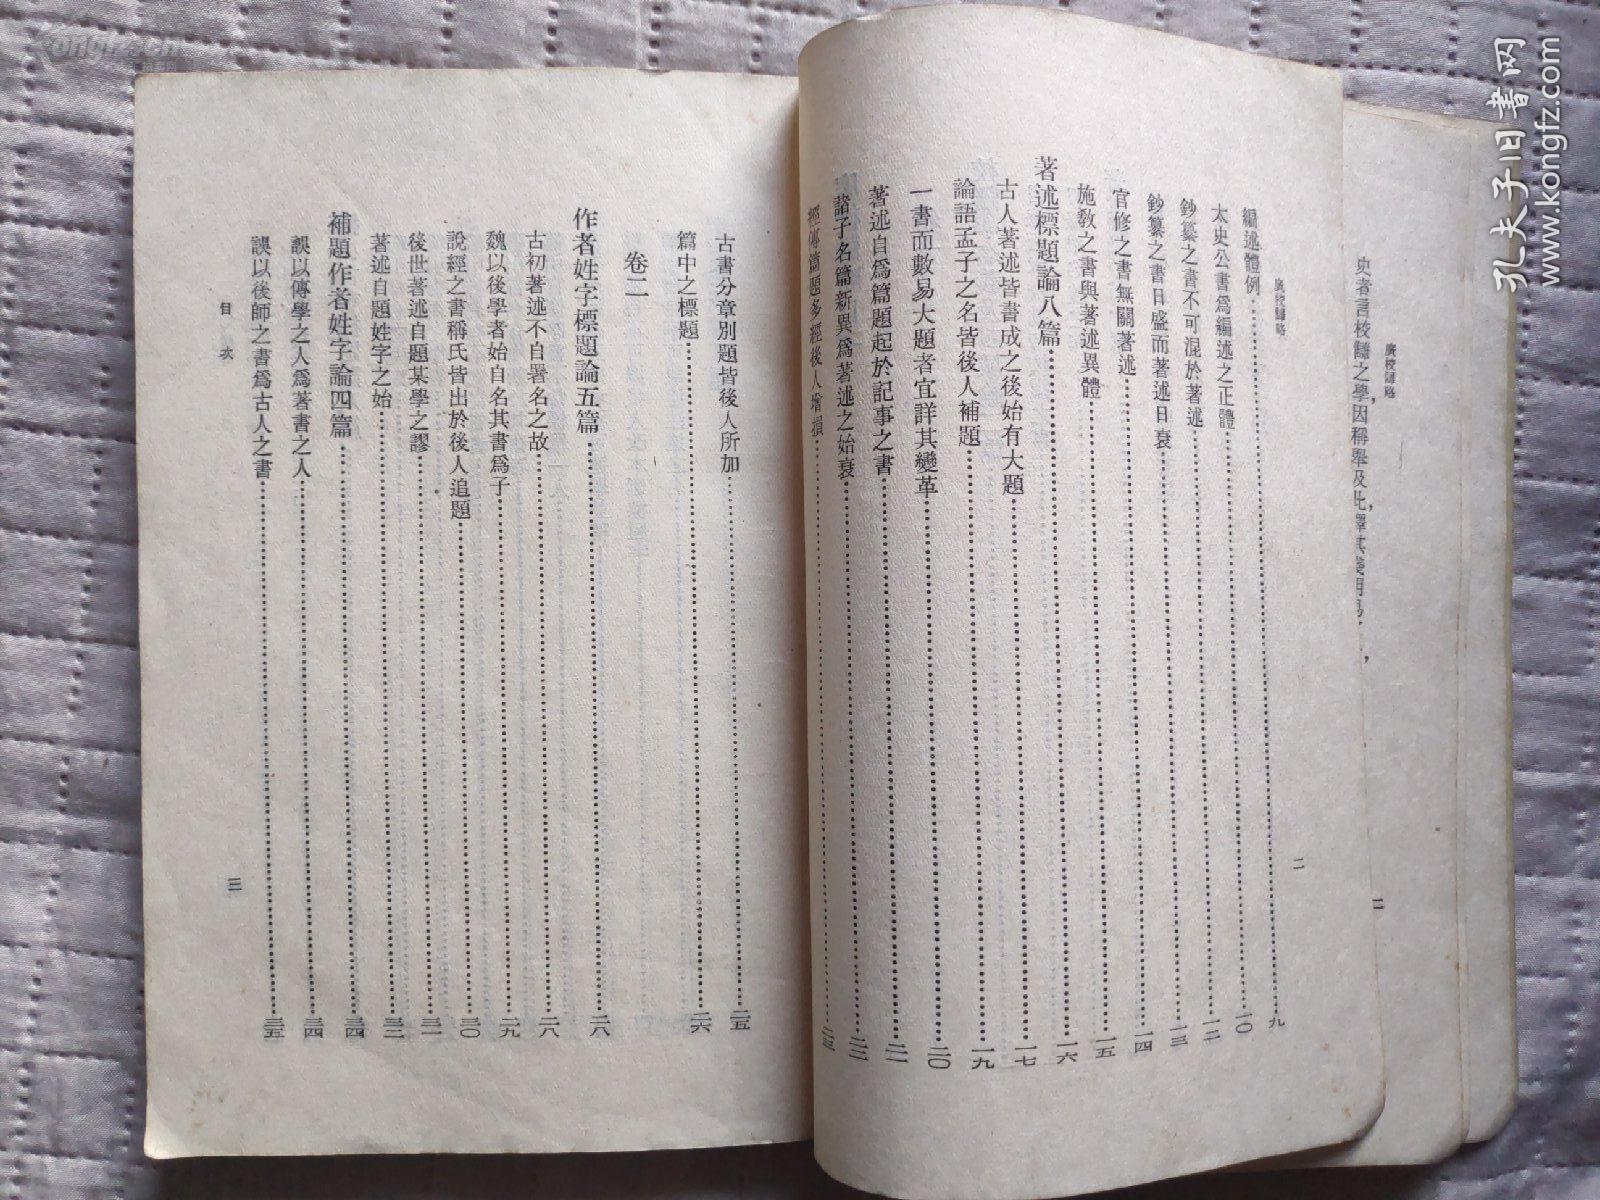 史者言校讎之學因稱舉及此
廣校讎略
二
廣校讎略
二
編述體例……九
太史公書爲編述之正體……一〇
鈔纂之書不可混於著述……一二
鈔纂之書日盛而著述日衰……一三
官修之書無關著述……一四
施教之書與著述異體……一五
著述標題論八篇……一六
古人著述皆書成之後始有大題……一七
論語孟子之名皆後人補題……一九
一書而數易大題者宜詳其變革……二〇
著述自爲篇題起於記事之書……二一
諸子名篇新異爲著述之始衰……二二
經傳篇題多經後人增損……二三
古書分章別題皆後人所加……二五
篇中之標題……二六
卷二
作者姓字標題論五篇……二八
古初著述不自署名之故……二八
魏以後學者始自名其書爲子……二九
說經之書稱氏皆出於後人追題……三〇
後世著述自題某學之謬……三一
著述自題姓字之始……三二
補題作者姓字論四篇……三四
誤以傳學之人爲著書之人……三四
誤以後師之書爲古人之書……三五
目次
三
孔夫子旧书网
www.kongfz.com